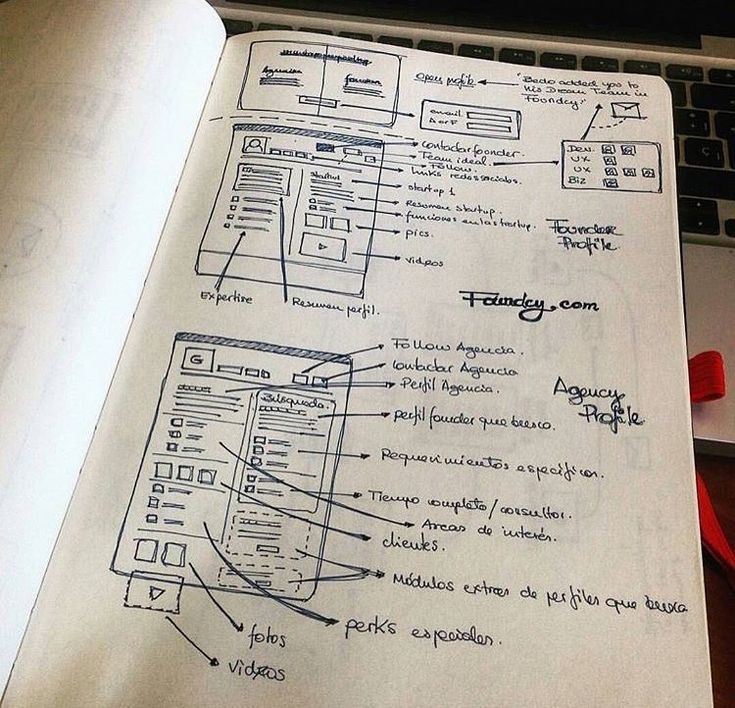 Agencia
founder
open profile
"Bedo added you to
his Dream Team in
Foundcy"
email
A or F
contactar founder.
Team ideal.
Follow.
links redes sociales.
startup 1
Resumen startup.
funciones en la startup.
pics.
videos
Startup
Dev.
UX
UX
Biz
Founder
Profile.
Expertise
Resumen perfil.
Foundcy.com
G
Follow Agencia.
contactar Agencia
Perfil Agencia.
Agency
Profile
Búsqueda.
perfil founder que busca.
Requerimientos específicos.
Tiempo completo/consultor.
Areas de interés.
clientes.
Módulos extras de perfiles que busca
perks especiales.
fotos
videos